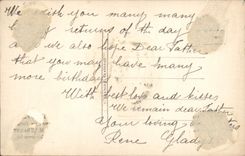 We wish you many many
returns of the day
we also hope Dear
that you may have many
more birthdays
With best love and kisses
We remain dear
Your loving
Rene Glad